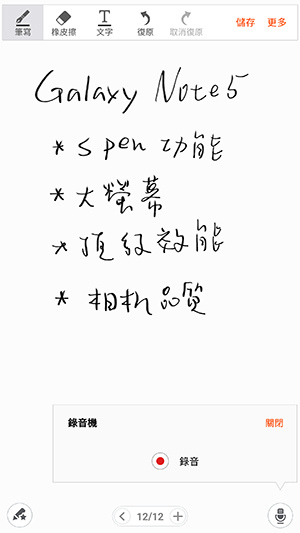 筆寫 橡皮擦 文字 復原 取消復原 儲存 更多
Galaxy Note5
* S pen 功能
* 大螢幕
* 頂級效能
* 相机品質
錄音機 關閉
錄音
12/12